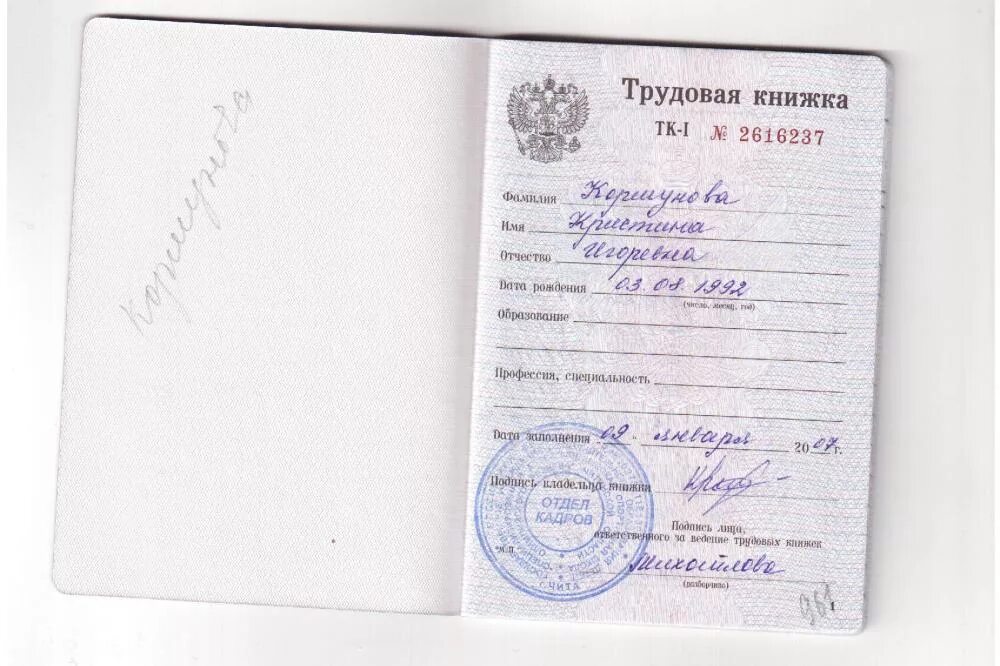 Коршунова
Трудовая книжка
ТК-I № 2616237
Фамилия Коршунова
Имя Кристина
Отчество Игоревна
Дата рождения 03.08.1992
(число, месяц, год)
Образование
Профессия, специальность
Дата заполнения 09 " января 2007 г.
Подпись владельца книжки
ОТДЕЛ
КАДРОВ
г.ЧИТА
Подпись лица,
ответственного за ведение трудовых книжек
М.П.
Михайлова
(разборчиво)
961
1